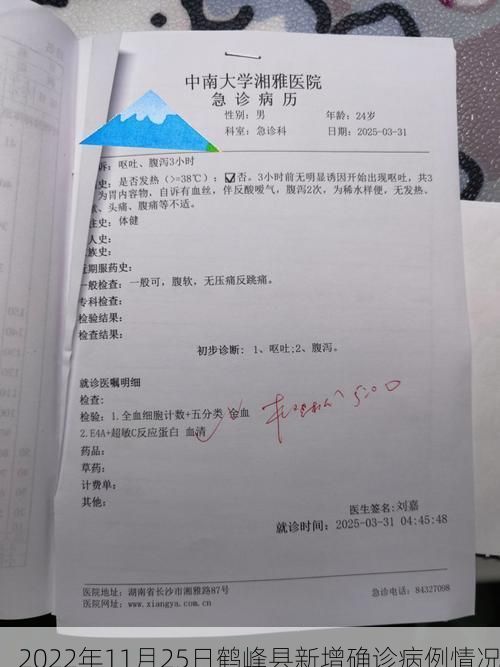 中南大学湘雅医院
急诊病历
性别：男 年龄：24岁
科室：急诊科 日期：2025-03-31
诉：呕吐、腹泻3小时
史：是否发热（>=38℃）：☑否。3小时前无明显诱因开始出现呕吐，共3
为胃内容物，自诉有血丝，伴反酸嗳气，腹泻2次，为稀水样便，无发热、
、头痛、腹痛等不适。
往史：体健
人史：
族史：
近期服药史：
一般检查：一般可，腹软，无压痛反跳痛。
专科检查：
检验结果：
检查结果：
初步诊断： 1、呕吐;2、腹泻。
就诊医嘱明细
检查：
检验：1.全血细胞计数+五分类 全血
2.E4A+超敏C反应蛋白 血清
药品：
草药：
计费单：
其他：
医生签名:刘嘉
就诊时间：2025-03-31 04:45:48
医院地址：湖南省长沙市湘雅路87号 急诊电话：84327098
医院网址：www.xiangya.com.cn
2022年11月25日鹤峰县新增确诊病例情况